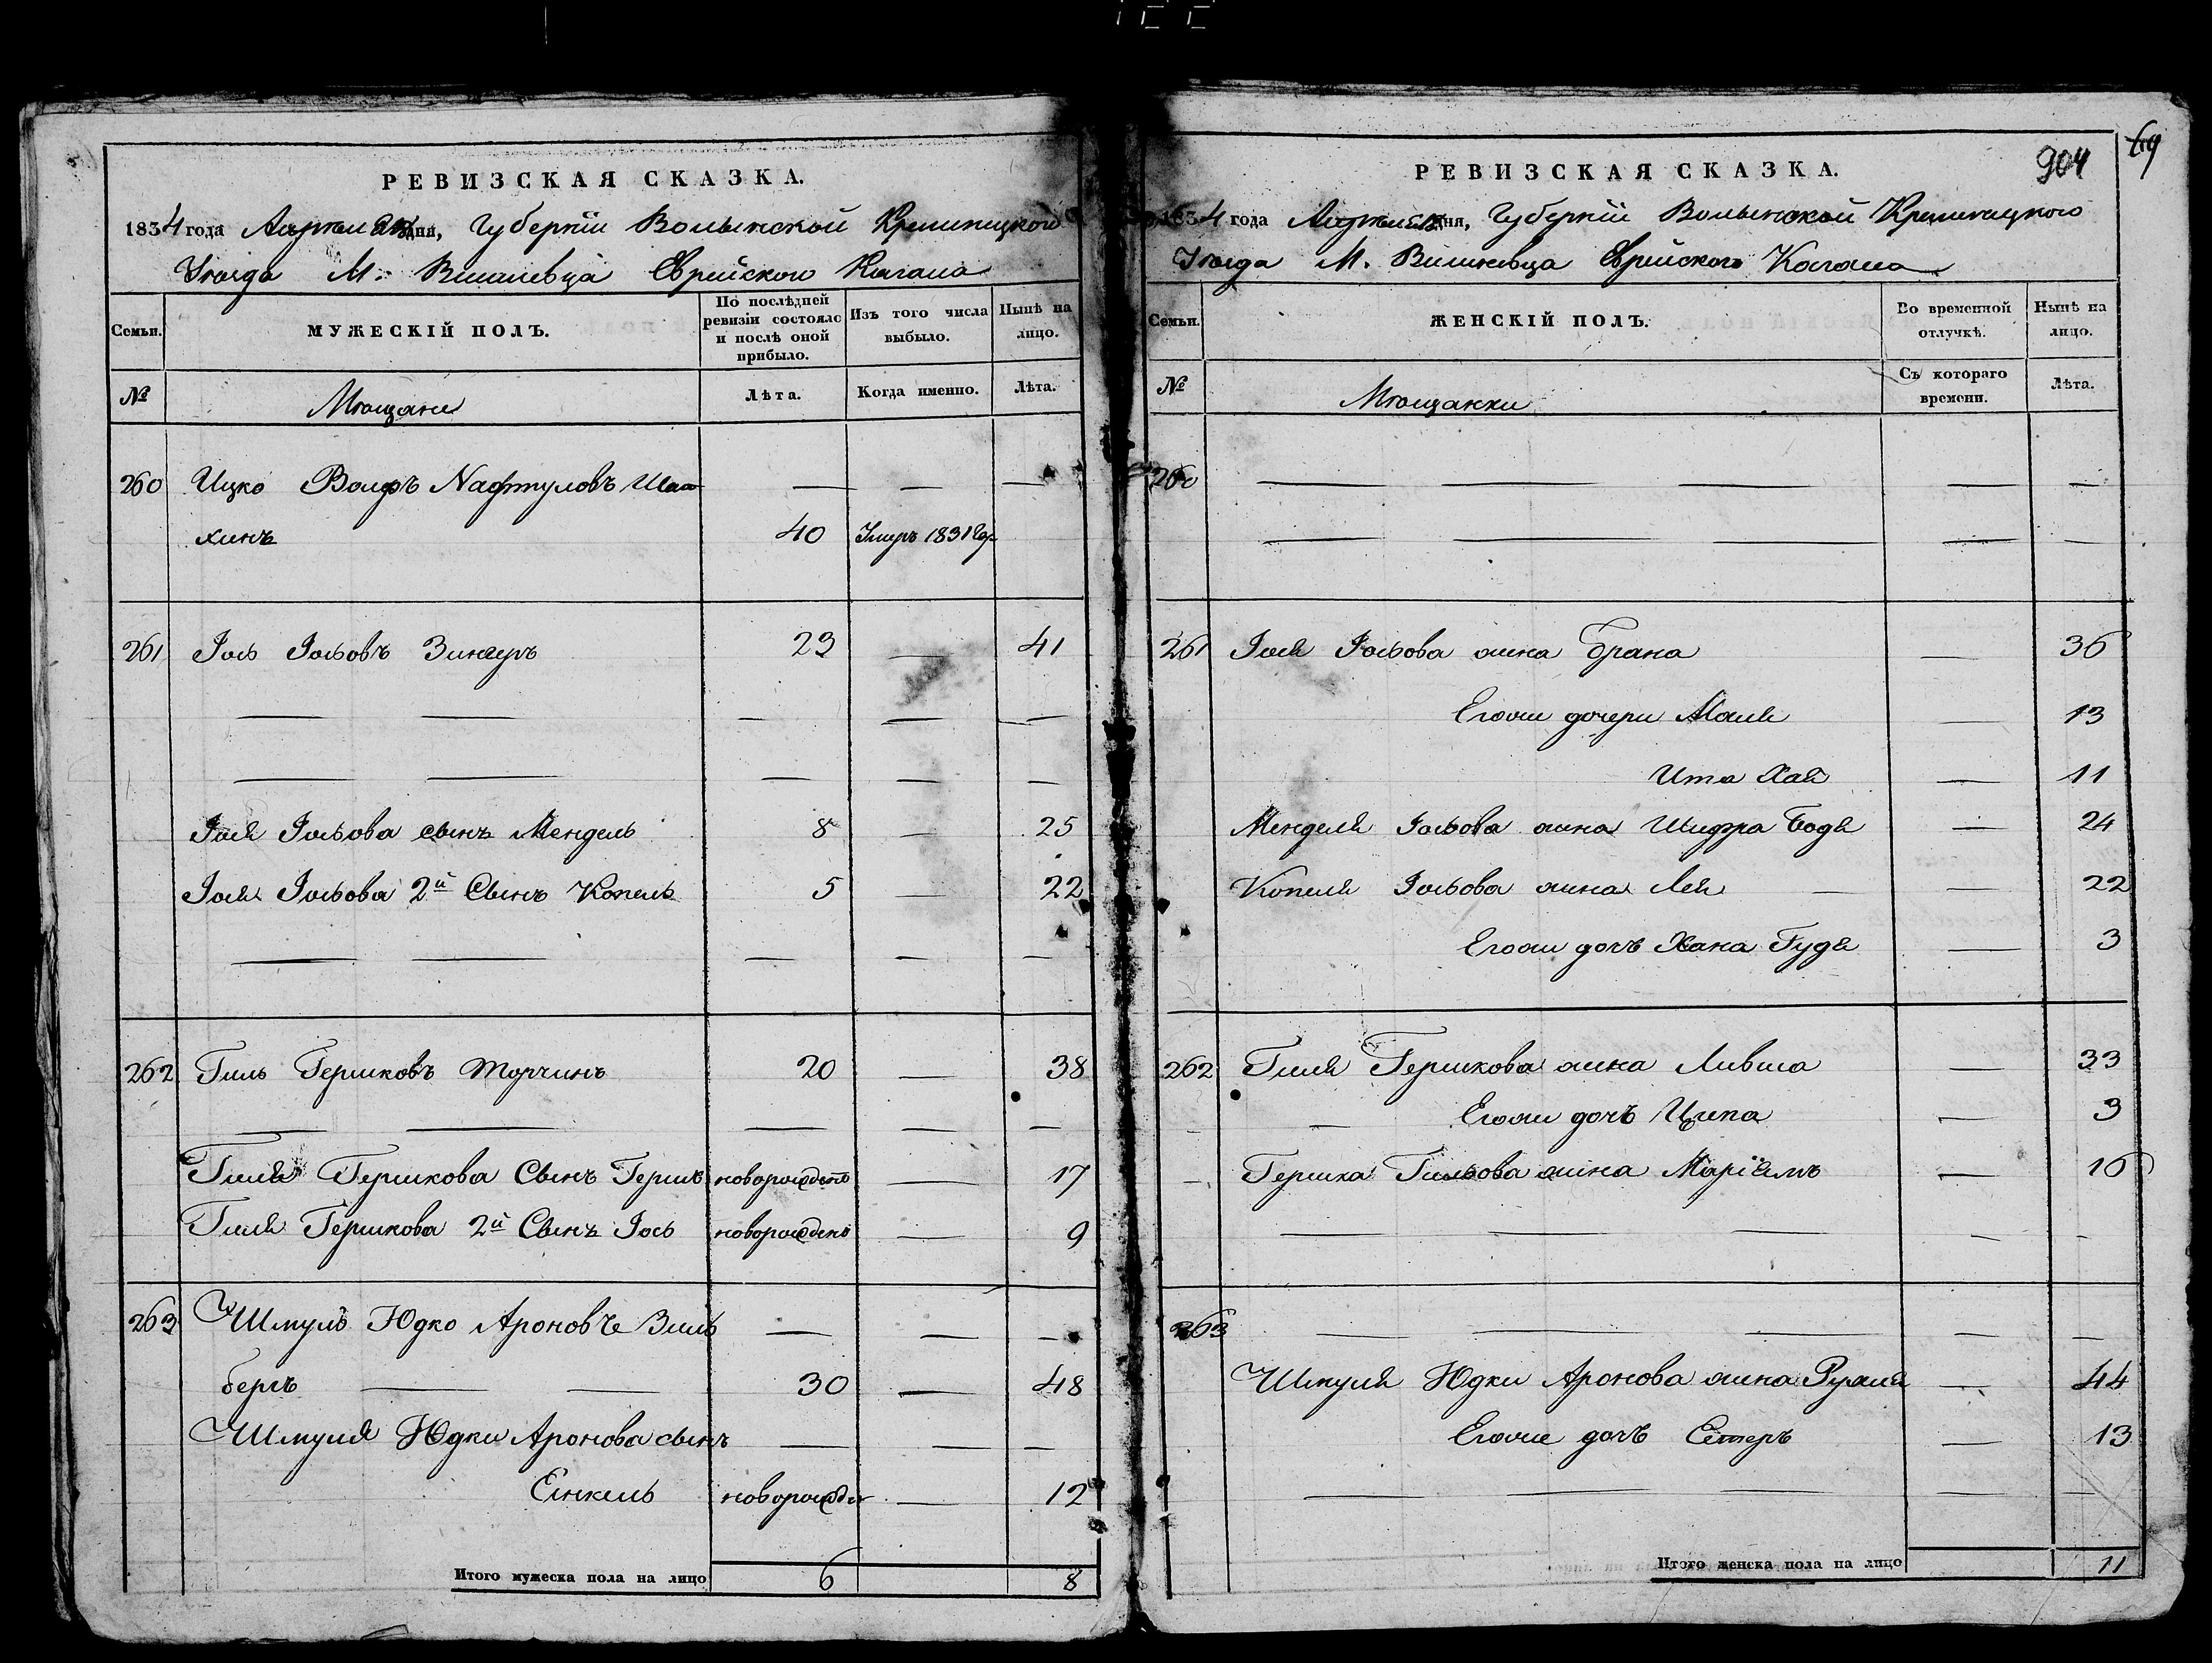 РЕВИЗСКАЯ СКАЗКА.
1834 года Апреля дня, Губернiи Волынской Кременецкого
Уѣзда М. Вишневца Еврейского Кагала
Семьи.
МУЖЕСКIЙ ПОЛЪ.
По послѣдней ревизiи состояло и послѣ оной прибыло.
Изъ того числа выбыло.
Нынѣ на лицо.
№
Мѣщане
Лѣта.
Когда именно.
Лѣта.
260 Ицко Волфъ Нафтуловъ Шао — — —
хинъ 40 Умеръ 1831 го
261 Iось Iосьовъ Зингеръ 23 — 41
— — — — —
— — — — —
Iося Iосьова сынъ Мендель 8 — 25
Iося Iосьова 2й Сынъ Копель 5 — 22
— — — — —
262 Гиль Гершковъ Торчинъ 20 — 38
— — — — —
Гиля Гершкова Сынъ Гершъ новорожденъ — 17
Гиля Гершкова 2й Сынъ Iось новорожденъ — 9
263 Шмуль Юдко Ароновъ Зиль — — —
бергъ — — 30 — 48
Шмуля Юдки Аронова сынъ — — —
Еінкель новорожден — 12
Итого мужеска пола на лицо 6 8
69
904
РЕВИЗСКАЯ СКАЗКА.
1834 года Апреля дня, Губернiи Волынской Кременецкого
Уѣзда М. Вишневца Еврейского Кагала
Семьи.
ЖЕНСКIЙ ПОЛЪ.
Во временной отлучкѣ.
Нынѣ на лицо.
№
Мѣщанки
Съ котораго времени.
Лѣта.
260 — — — — —
— — — — —
261 Iося Iосьова жина Брана — 36
Егоже дочери Маля — 13
Ита Хая — 11
Менделя Iосьова жина Шифра Бодя — 24
Копеля Iосьова жина Лея — — 22
Егоже дочъ Хана Гудя — 3
262 Гиля Гершкова жина Ливша — 33
— — Егоже дочъ Ципа — 3
— Гершка Гильова жина Марiямъ — 16
— — — — —
263 — — — — —
Шмуля Юдки Аронова жина Рухля — 44
Егоже дочъ Естеръ — 13
— — — — —
Итого женска пола на лицо 11